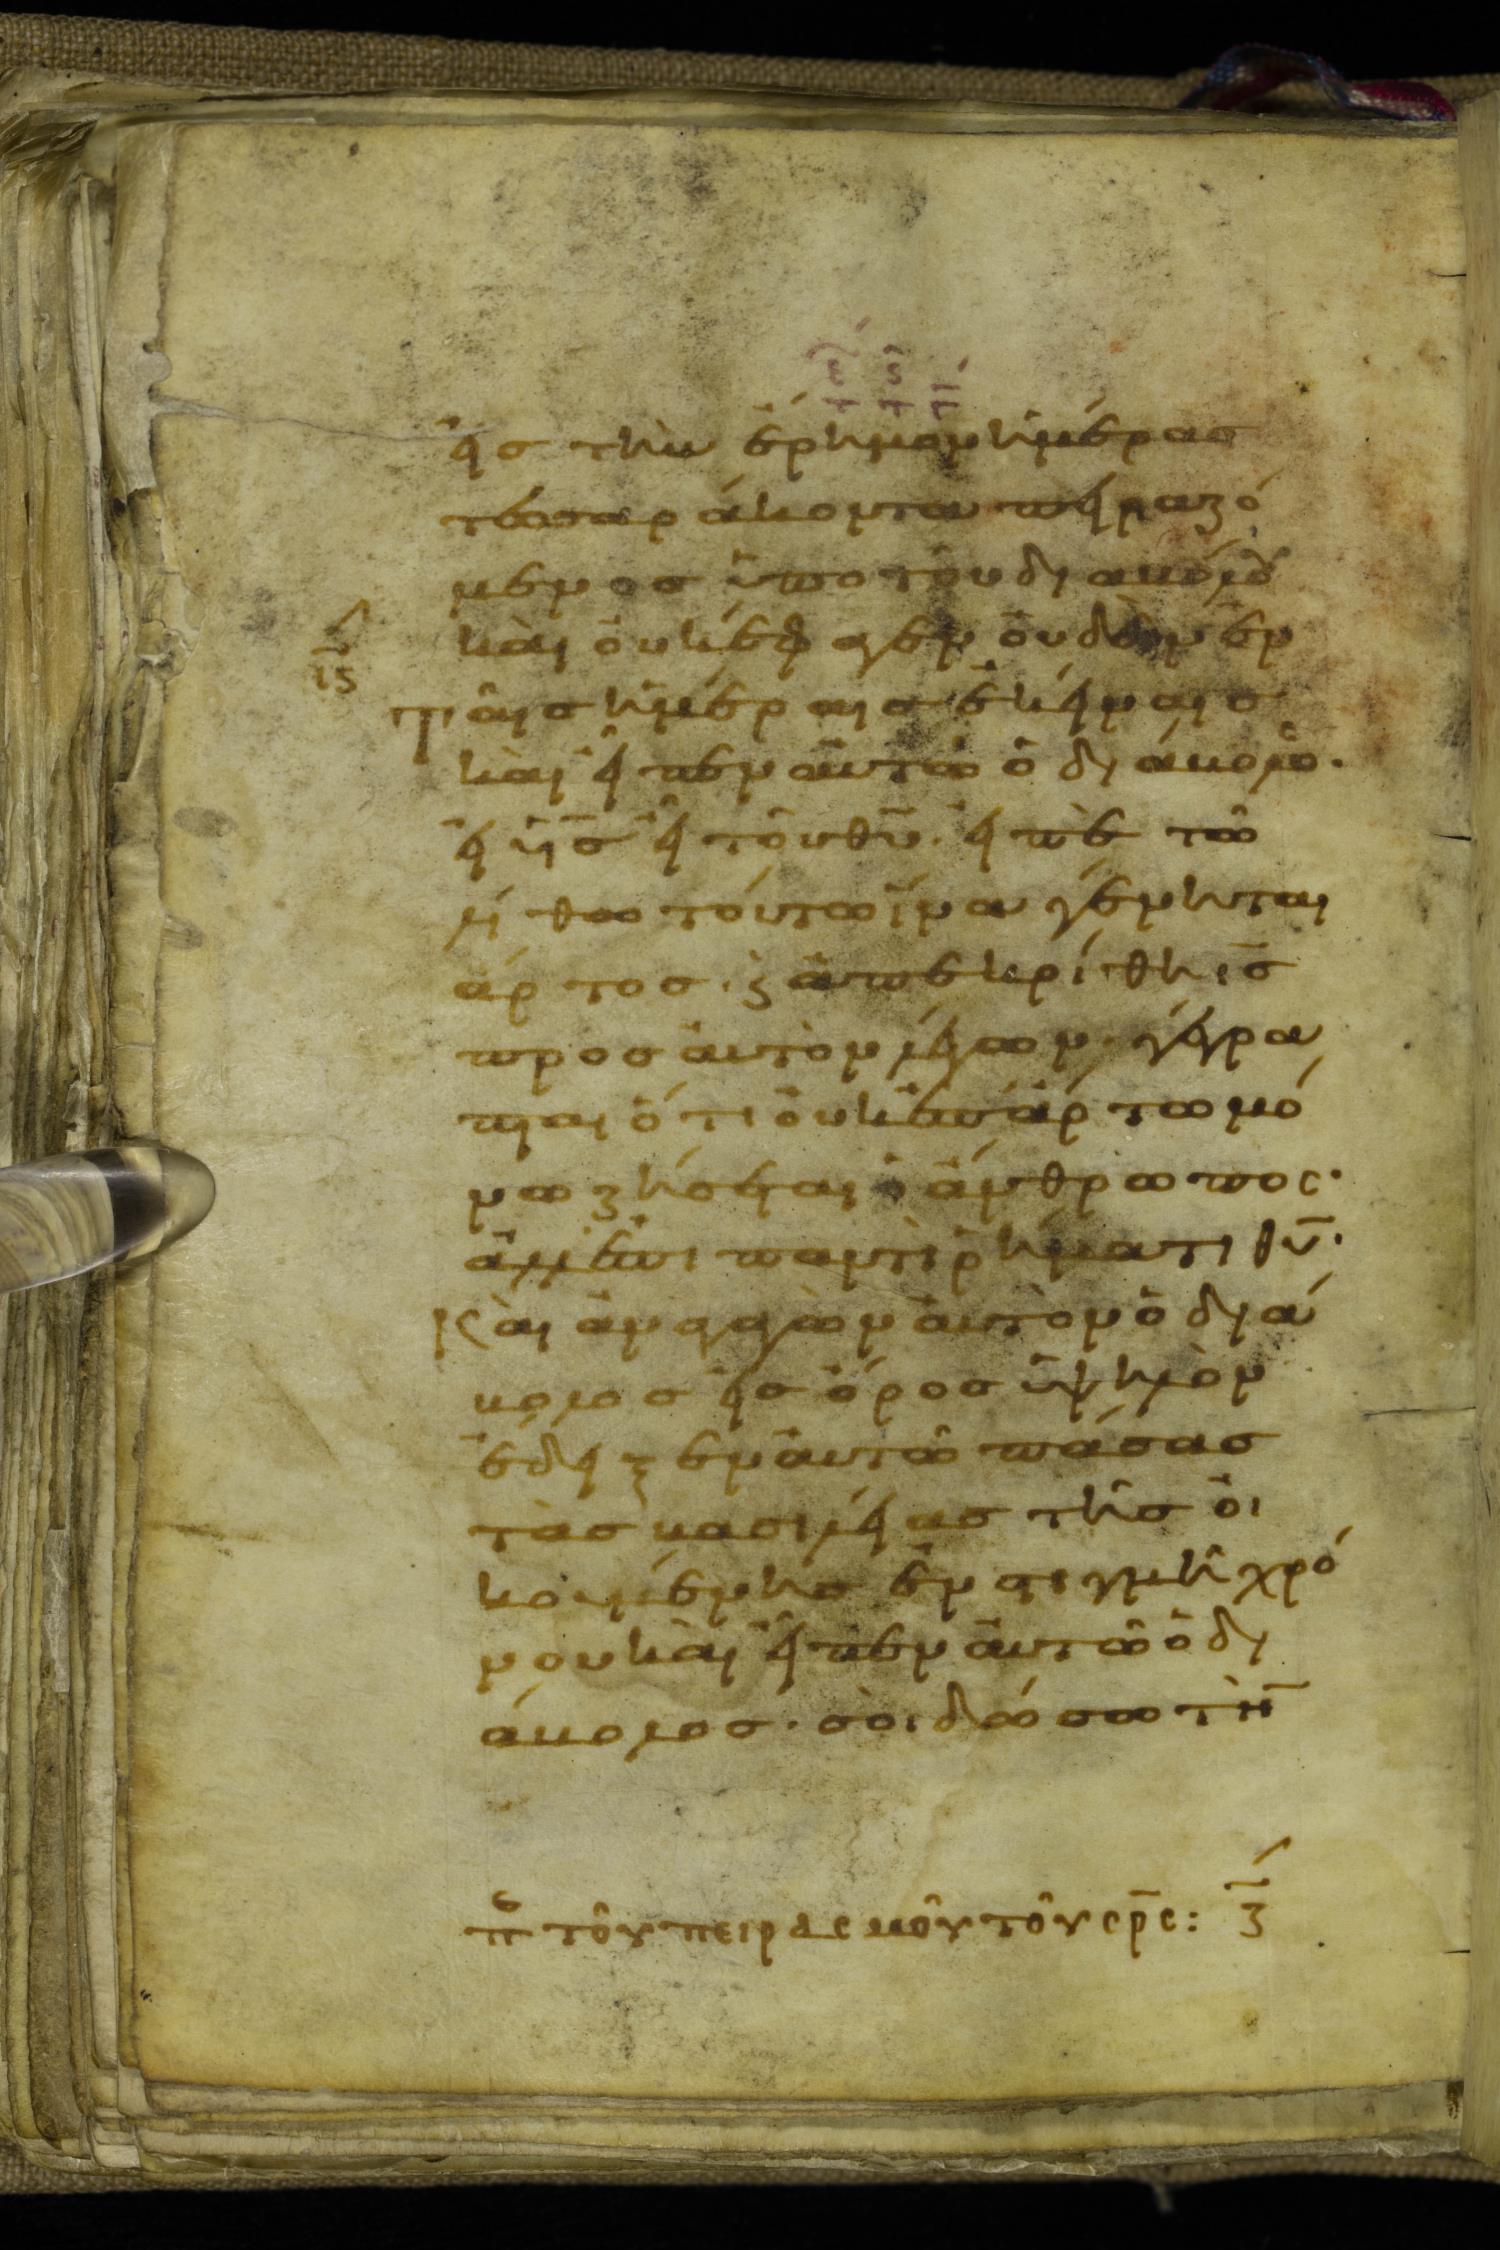 εἰς τὴν ἔρημον ἡμέρας
τεσσαράκοντα πειραζό
μενος ὑπο τοῦ διαβόλου
καὶ οὐκ ἔφαγεν οὐδὲν ἐν
ις
ταῖς ἡμέραις ἐκείναις
καὶ εἶπεν αὐτῶ ὁ διάβολο.
εἰ υἱς εἶ τοῦ θυ. εἰπὲ τῶ
λίθω τούτω ἵνα γένηται
ἄρτος. ἀπεκρίθη ις
προς αὐτὸν λέγων. γέγρα
πται ὅτι οὐκ ἐπ ἄρτω μό
νω ζήσεται ὁ ἄνθρωπος.
ἀλλ ἐπι παντὶ ῥήματι θυ.
Καὶ ἀναγαγὼν αὐτὸν ὁ διά
βολος εἰς ὄρος ὑψηλὸν
ἔδειξεν αὐτῶ πάσας
τὰς βασιλείας τῆς οἰ
κουμένης ἐν στιγμῆ χρό
νου καὶ εἶπεν αὐτῶ ὁ δι
άβολος. σὸι δώσω τὴν
πε τοῦ πειρασμοῦ τοῦ σρς: ζ